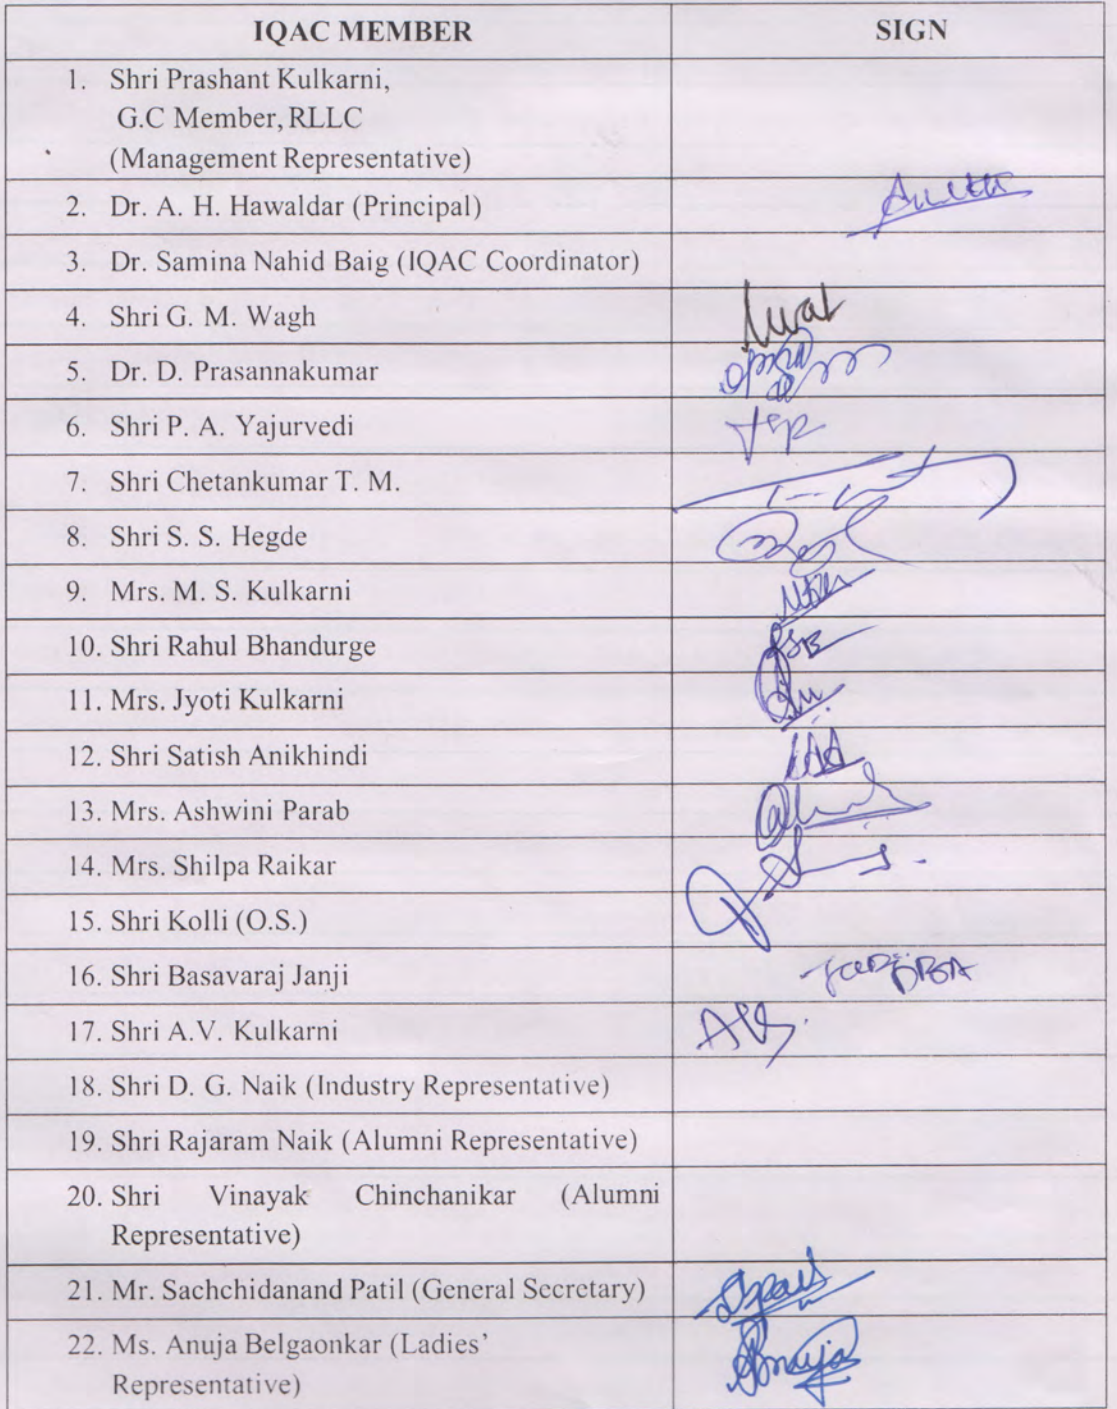 IQAC MEMBER SIGN
1. Shri Prashant Kulkarni,
G.C Member, RLLC
(Management Representative)
2. Dr. A. H. Hawaldar (Principal)
3. Dr. Samina Nahid Baig (IQAC Coordinator)
4. Shri G. M. Wagh
5. Dr. D. Prasannakumar
6. Shri P. A. Yajurvedi
7. Shri Chetankumar T. M.
8. Shri S. S. Hegde
9. Mrs. M. S. Kulkarni
10. Shri Rahul Bhandurge
11. Mrs. Jyoti Kulkarni
12. Shri Satish Anikhindi
13. Mrs. Ashwini Parab
14. Mrs. Shilpa Raikar
15. Shri Kolli (O.S.)
16. Shri Basavaraj Janji
17. Shri A.V. Kulkarni
18. Shri D. G. Naik (Industry Representative)
19. Shri Rajaram Naik (Alumni Representative)
20. Shri Vinayak Chinchanikar (Alumni
Representative)
21. Mr. Sachchidanand Patil (General Secretary)
22. Ms. Anuja Belgaonkar (Ladies’
Representative)